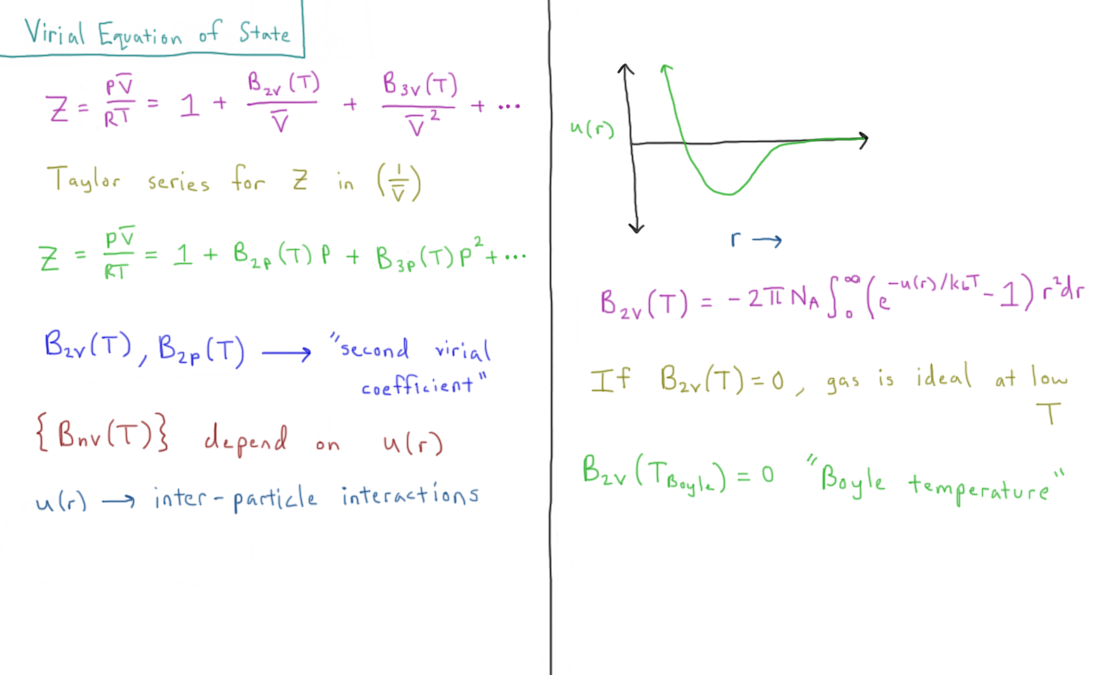 Virial Equation of State
Z = PV̅/RT = 1 + B₂ᵥ(T)/V̅ + B₃ᵥ(T)/V̅² + ...
Taylor series for Z in (1/V̅)
Z = PV̅/RT = 1 + B₂ₚ(T)P + B₃ₚ(T)P² + ...
B₂ᵥ(T), B₂ₚ(T) ⟶ "second virial
coefficient"
{Bnv(T)} depend on u(r)
u(r) → inter-particle interactions
u(r)
r →
B₂ᵥ(T) = -2πN_A ∫₀^∞ (e^(-u(r)/k_bT) - 1) r²dr
If B₂ᵥ(T) = 0, gas is ideal at low
T
B₂ᵥ(T_Boyle) = 0 "Boyle temperature"